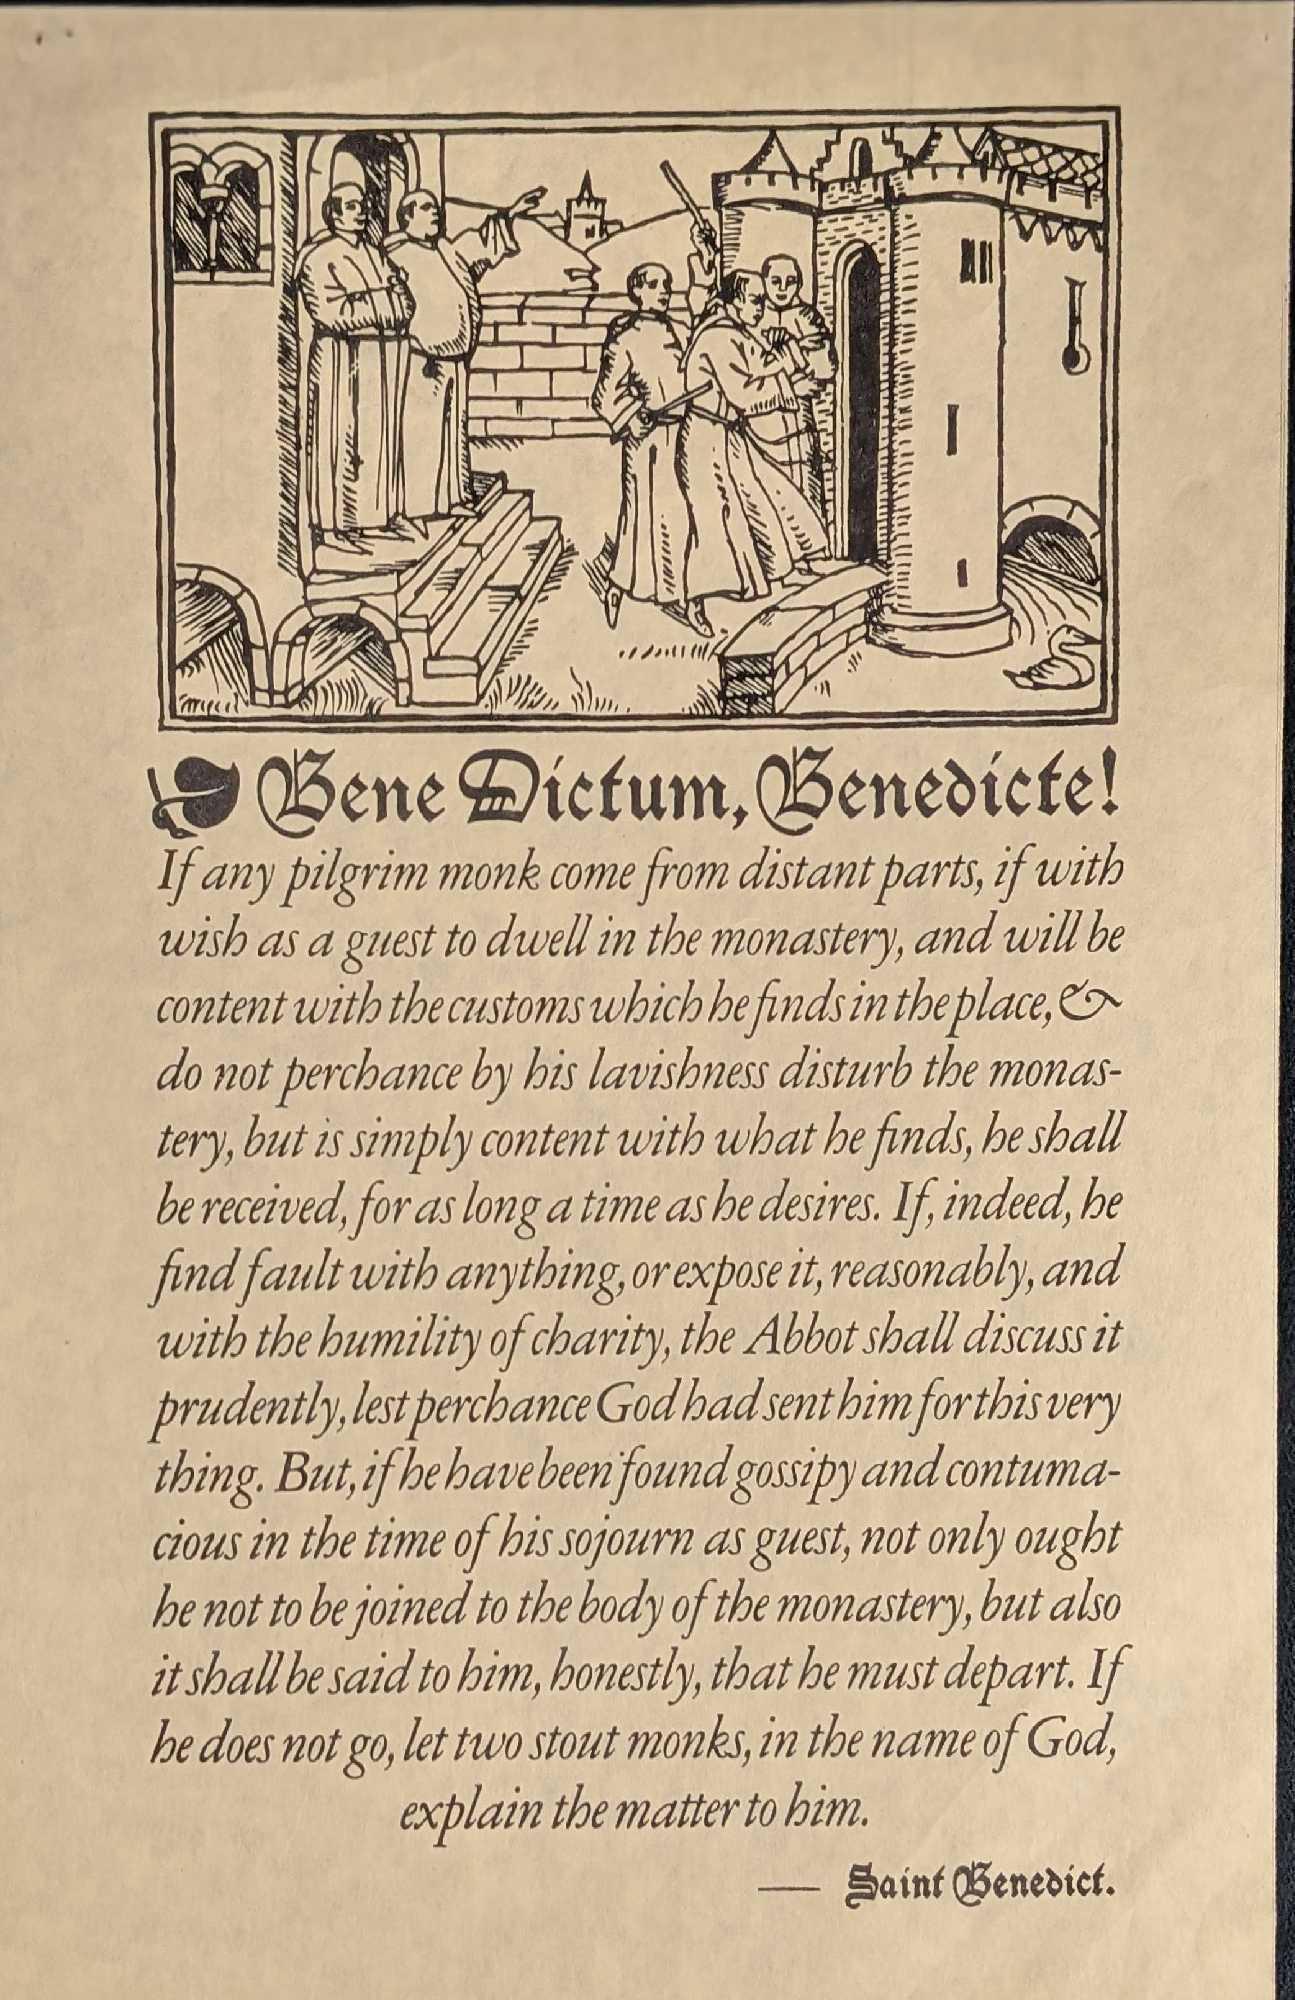 Bene Dictum, Benedicte!
If any pilgrim monk come from distant parts, if with
wish as a guest to dwell in the monastery, and will be
content with the customs which he finds in the place, &
do not perchance by his lavishness disturb the monas-
tery, but is simply content with what he finds, he shall
be received, for as long a time as he desires. If, indeed, he
find fault with anything, or expose it, reasonably, and
with the humility of charity, the Abbot shall discuss it
prudently, lest perchance God had sent him for this very
thing. But, if he have been found gossipy and contuma-
cious in the time of his sojourn as guest, not only ought
he not to be joined to the body of the monastery, but also
it shall be said to him, honestly, that he must depart. If
he does not go, let two stout monks, in the name of God,
explain the matter to him.
— Saint Benedict.